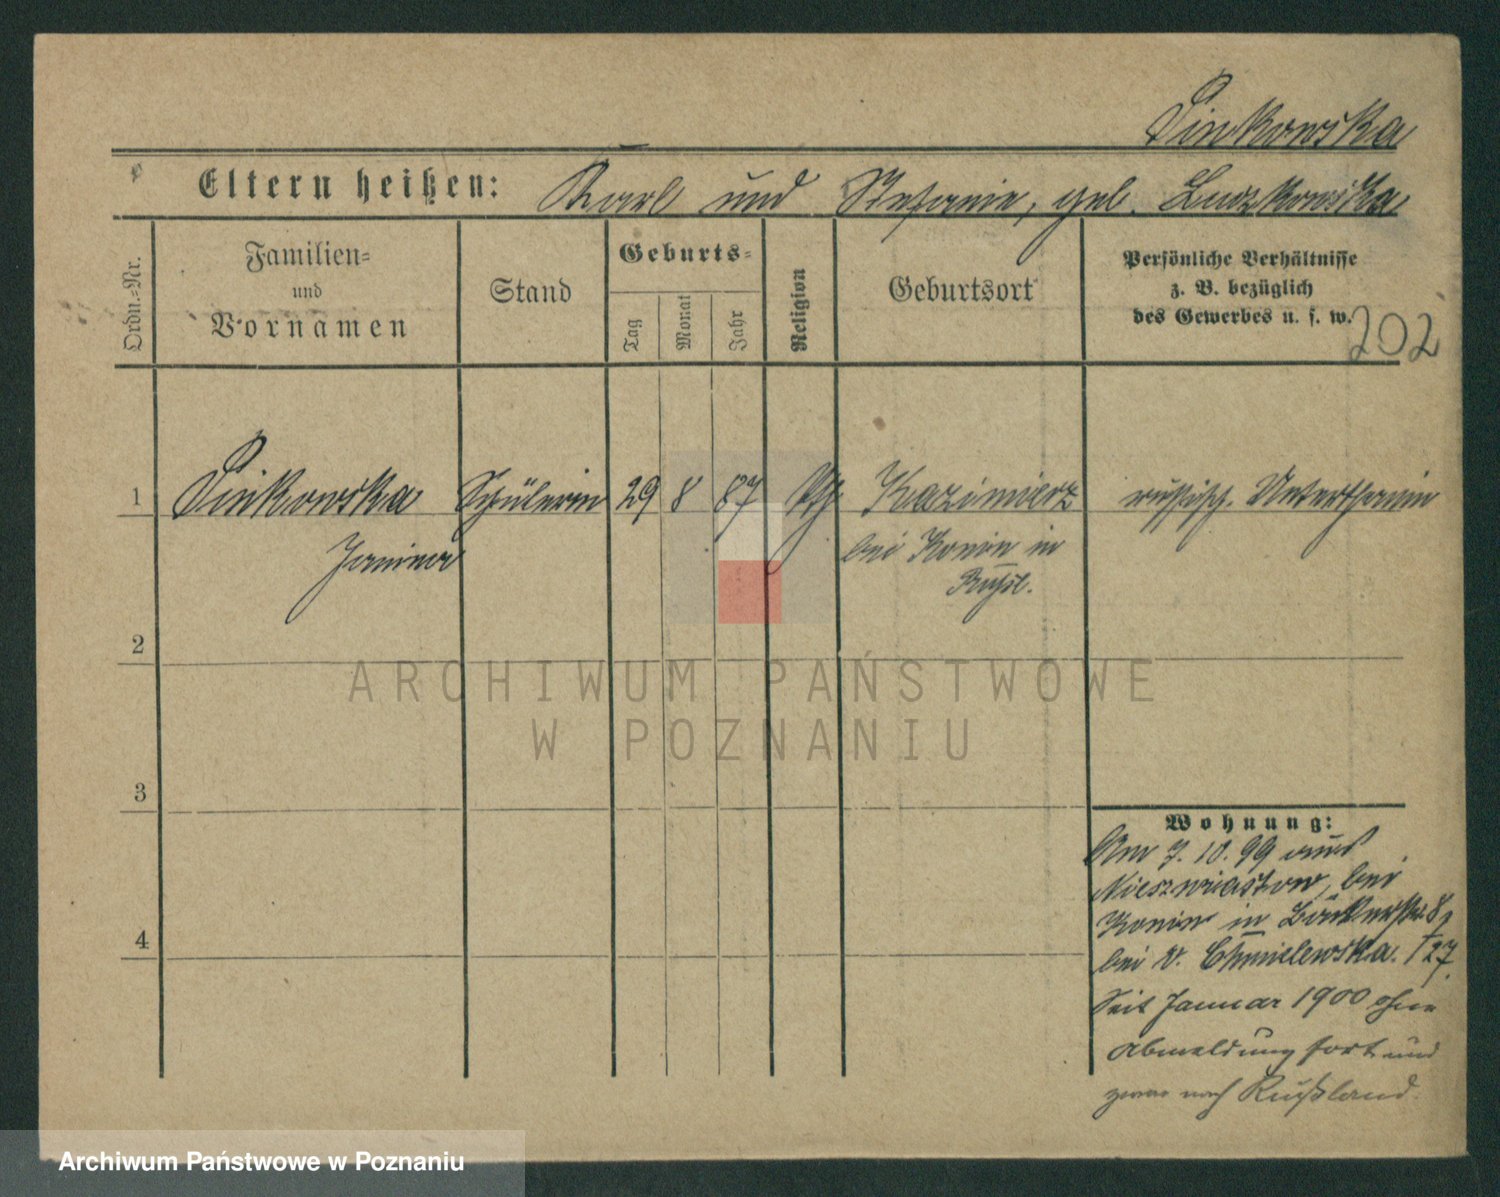 Sinkowska
Eltern heißen: Karl und Stefanie, geb. Luczkowska
Ordn.=Nr.
Familien=
und
Vornamen
Stand
Geburts=
Tag
Monat
Jahr
Religion
Geburtsort
Persönliche Verhältnisse
z. B. bezüglich
des Gewerbes u. s. w.
202
1 Sinkowska Schülerin 29 8 87 kth Kazimierz russisch. Unterthanin
Janina bei Konin in
Rußl.
2
3
4
Wohnung:
Am 7. 10. 99 aus
bei
Konin in Bäckerstr. 8,
bei v. Chmielewska. 127.
Seit Januar 1900 ohne
Abmeldung fort und
zwar nach Rußland.
ARCHIWUM PAŃSTWOWE
W POZNANIU
Archiwum Państwowe w Poznaniu